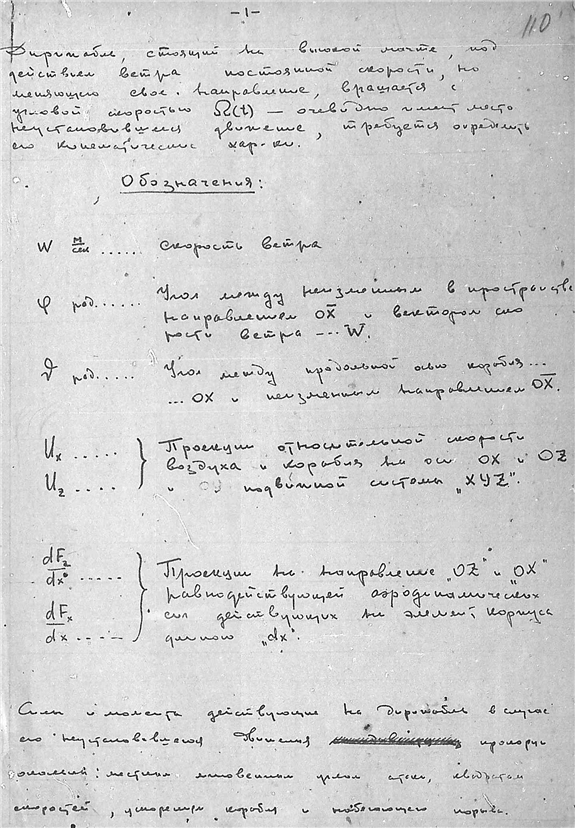 -1-
110
Дирижабль, стоящий на высокой мачте, под
действием ветра постоянной скорости, но
меняющего свое направление, вращается с
угловой скоростью Ω(t) — очевидно имеет место
неустановившееся движение, требуется определить
его кинематические хар-ки.
Обозначения:
W м/сек ..... скорость ветра
φ рад...... Угол между неизменным в пространстве
направлением OX̅ и вектором ско
рости ветра --- W̅.
ϑ рад...... Угол между продольной осью корабля ...
... OX и неизменным направлением OX̅.
Ux ..... } Проекции относительной скорости
воздуха и корабля на оси OX и OZ
Uz ..... подвижной системы „XYZ".
dFz/dx ..... } Проекции на направление „OZ" и „OX"
равнодействующей аэродинамических
dFx/dx ..... сил действующих на элемент корпуса
длиною „dx".
Силы и момента действующие на дирижабль в случае
его неустановившегося движения пропорци
ональной: местным мгновенным углам атаки, квадратам
скоростей, ускорениям корабля и набегающего порыва.